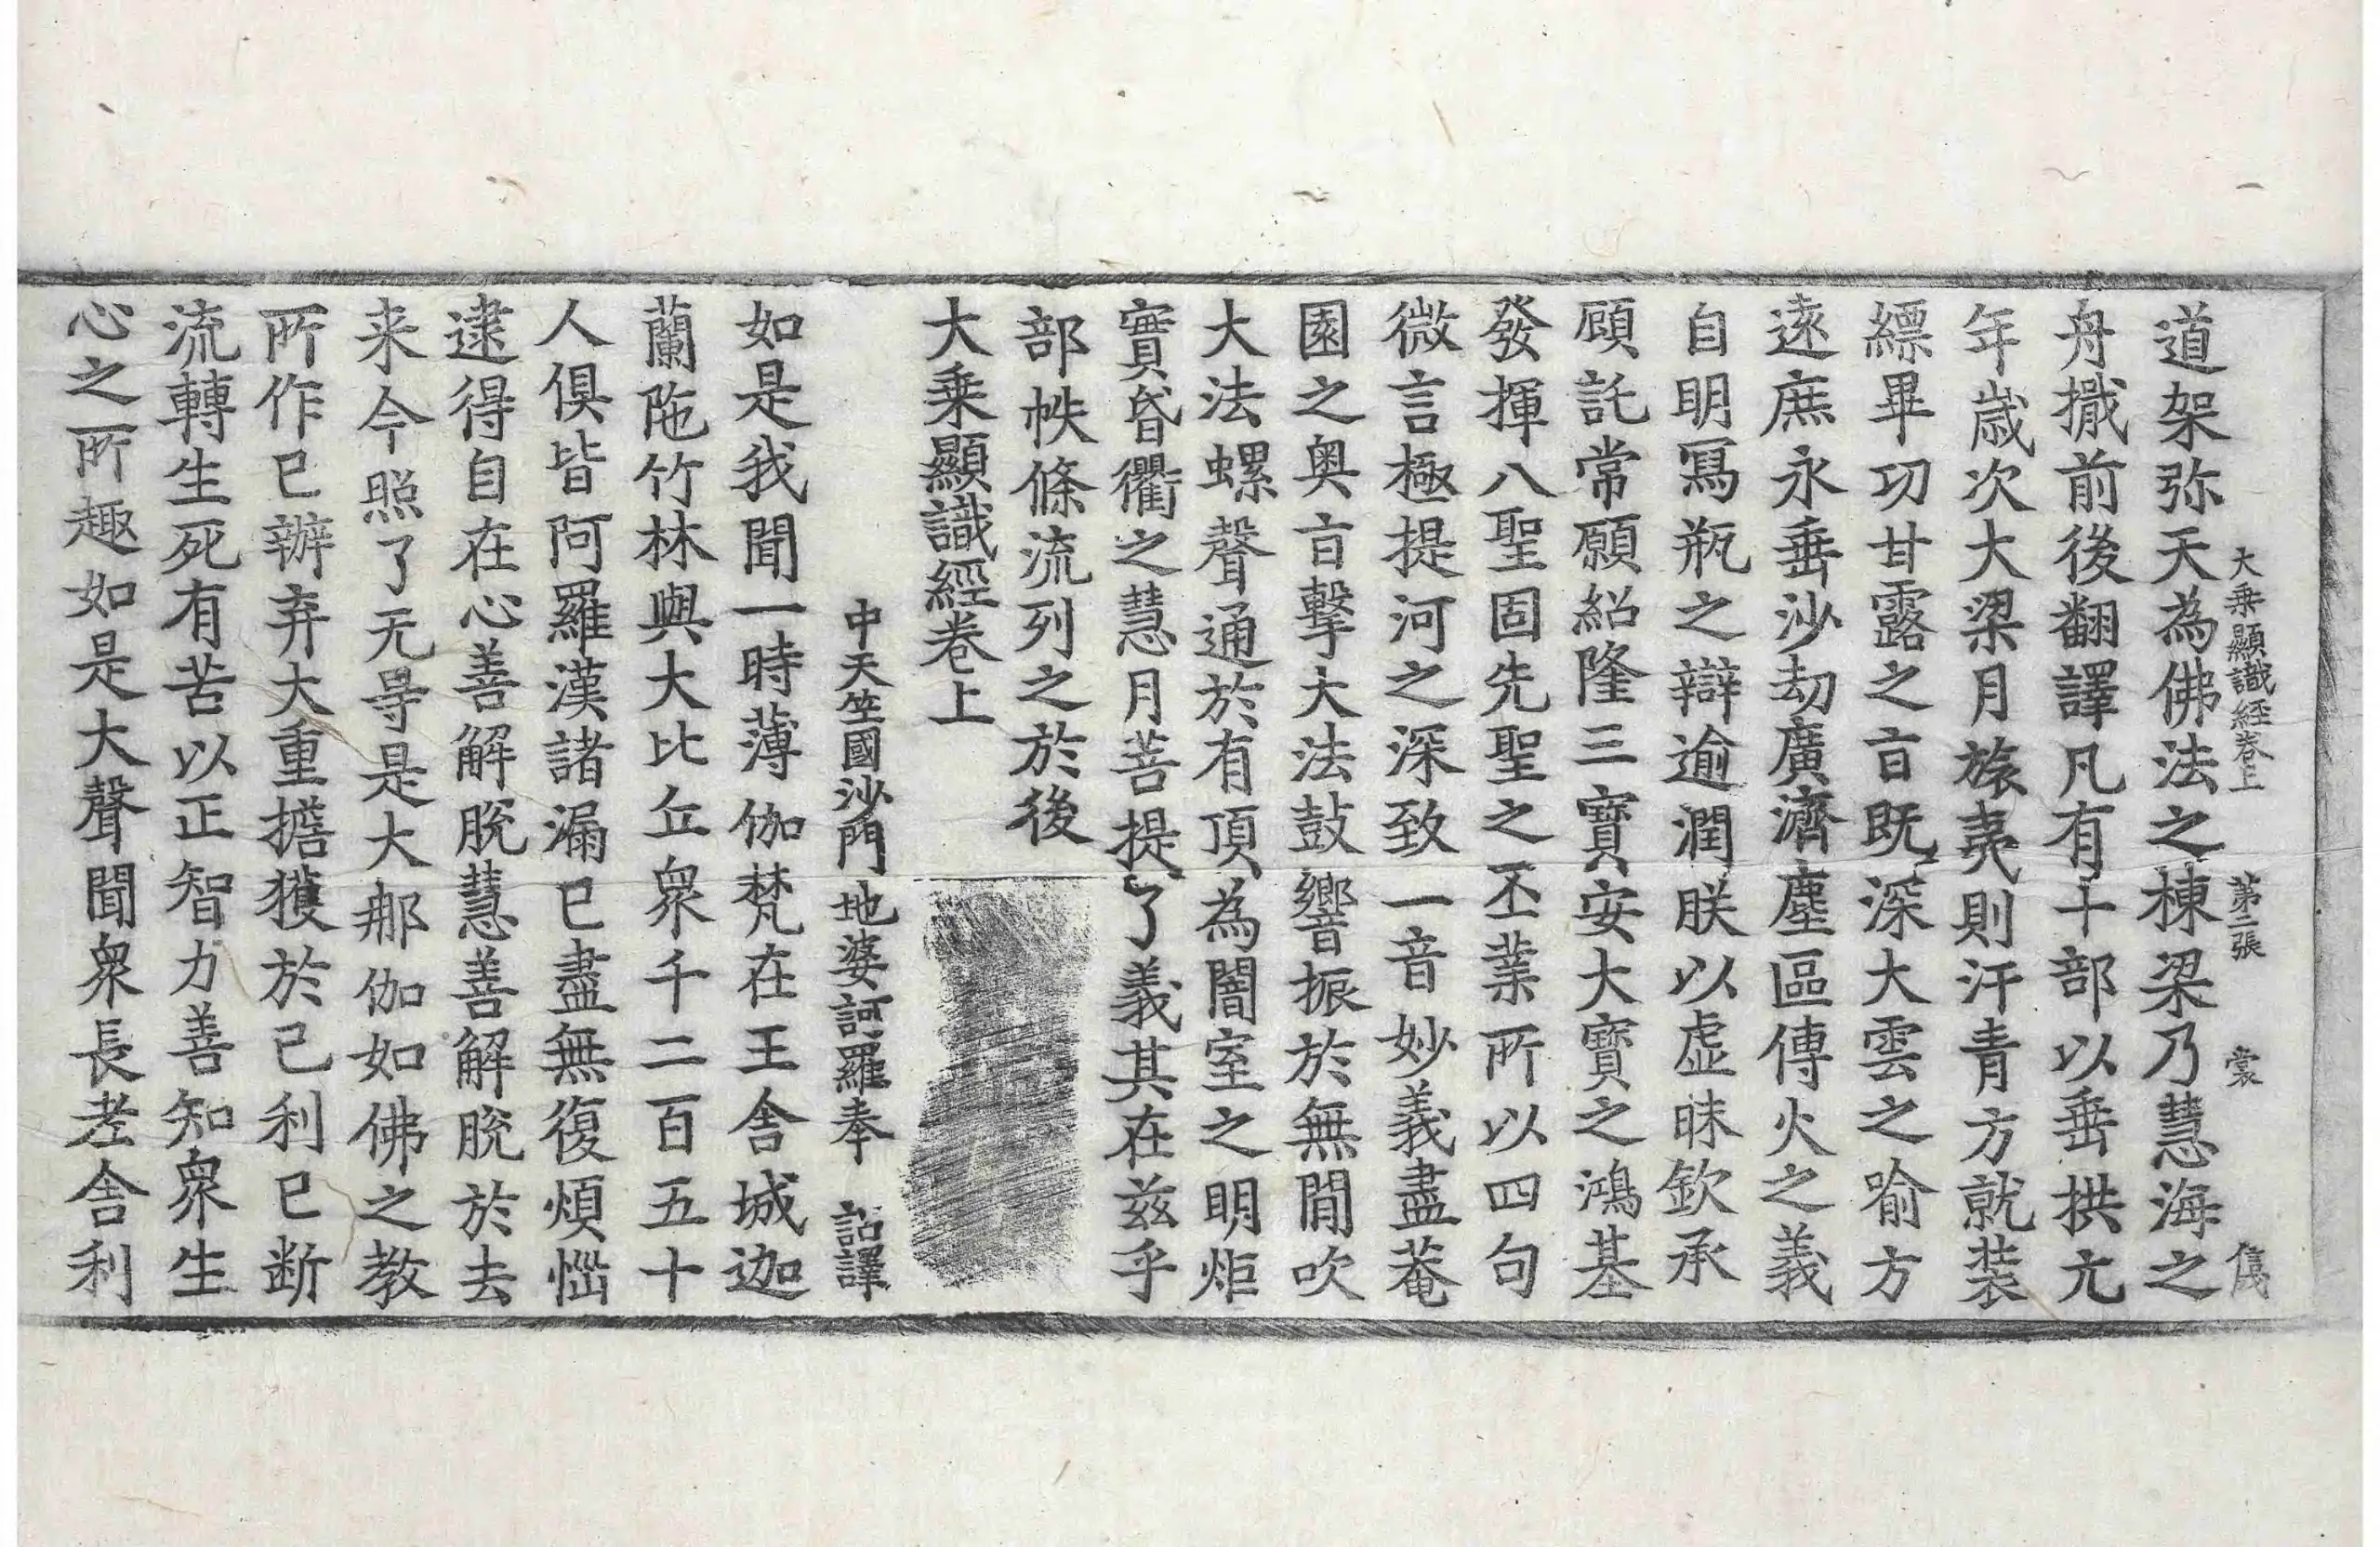 大乗顯識経卷上 第二張 裳 儁
道架弥天為佛法之棟梁乃慧海之
舟擑前後翻譯凡有十部以垂拱元
年歲次大梁月旅夷則汗青方就装
縹畢功甘露之旨既深大雲之喻方
遠庶永垂沙劫廣濟塵區傳火之義
自明冩瓶之辯逾潤朕以虛昧欽承
顧託常願紹隆三寶安大寶之鴻基
發揮八聖固先聖之丕業所以四句
微言極提河之深致一音妙義盡菴
園之奥旨擊大法鼓響振於無閒吹
大法螺聲通於有頂為闇室之明炬
實昏衢之慧月菩提了義其在兹乎
部帙條流列之於後
大乗顯識經卷上
中天笠國沙門地婆訶羅奉 詔譯
如是我聞一時薄伽梵在王舎城迦
蘭陁竹林與大比丘衆千二百五十
人俱皆阿羅漢諸漏已盡無復煩惱
逮得自在心善解脫慧善解脫於去
来今照了无㝵是大那伽如佛之教
所作已辦弃大重擔獲於己利已断
流轉生死有苦以正智力善知衆生
心之所趣如是大聲聞衆長老舎利